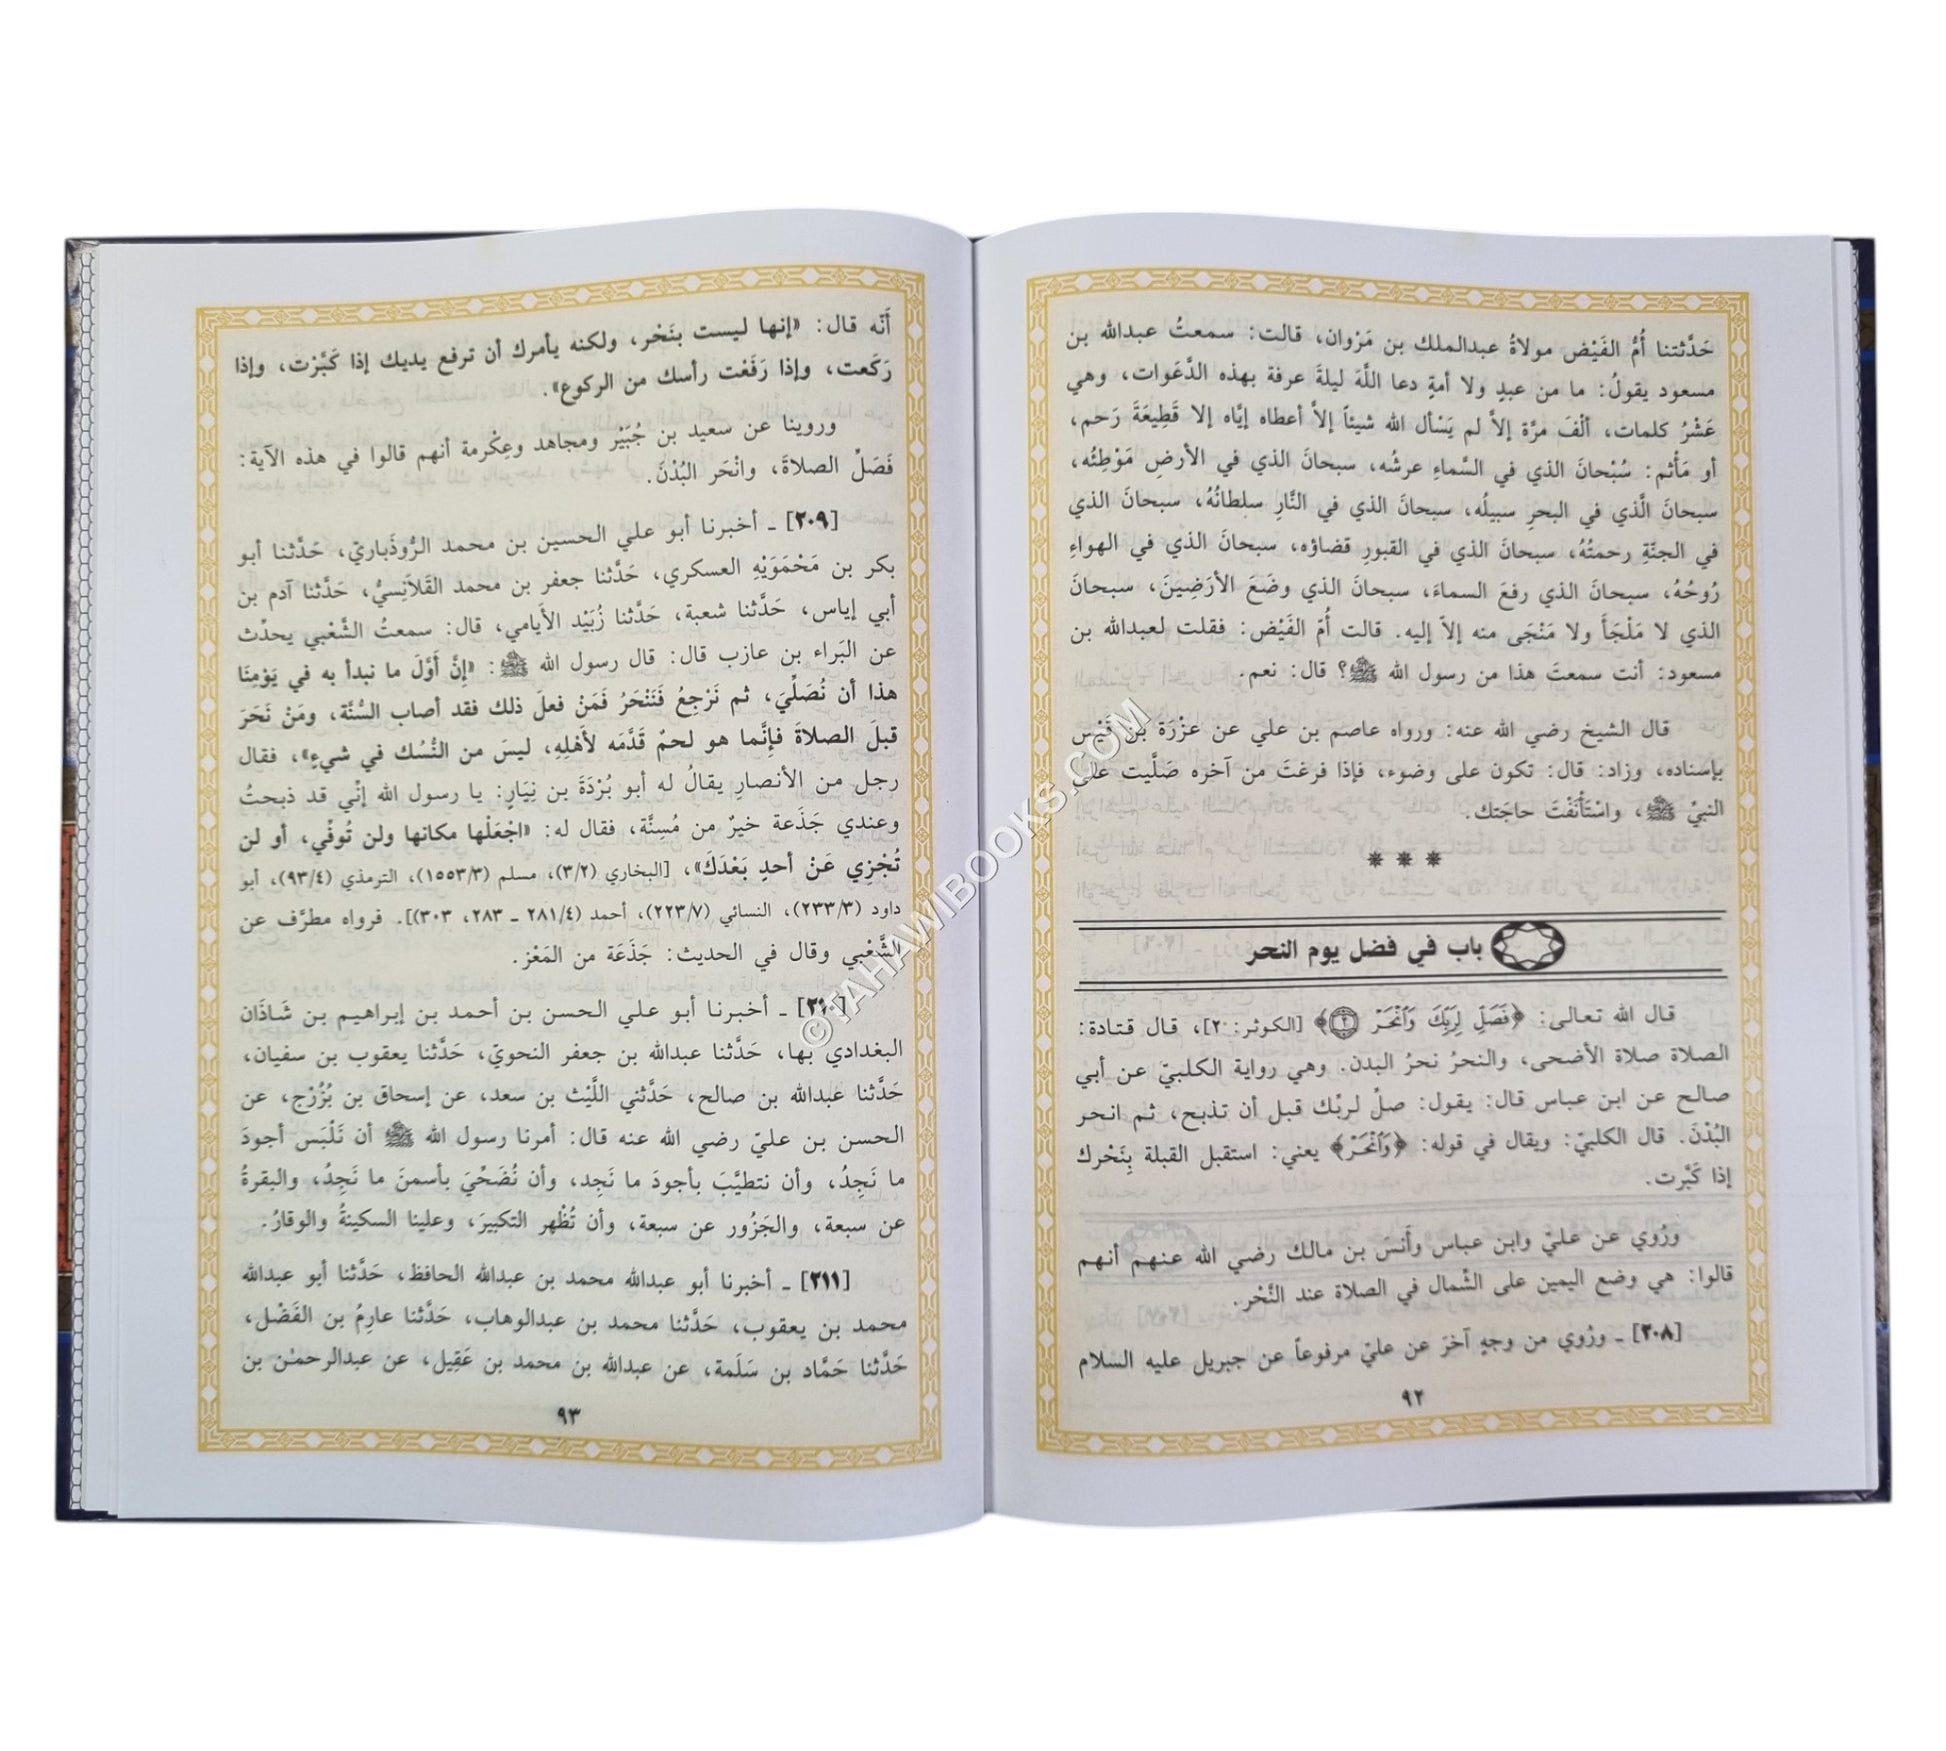 حَدَّثتنا أُمُّ الفَيْض مولاةُ عبدالملك بن مَرْوان، قالت: سمعتُ عبدالله بن
مسعود يقولُ: ما من عبدٍ ولا أمةٍ دعا اللَّهَ ليلةَ عرفة بهذه الدَّعَوات، وهي
عَشْرُ كَلمات، ألْفَ مرَّة إلاَّ لم يَسْأل الله شيئاً إلاَّ أعطاه إيَّاه إلا قَطِيعَةَ رَحم،
أو مَأْثم: سُبْحانَ الذي في السَّماءِ عرشُه، سبحانَ الذي في الأرضِ مَوْطِئُه،
سبحانَ الَّذي في البحرِ سبيلُه، سبحانَ الذي في النَّارِ سلطانُهُ، سبحانَ الذي
في الجنَّةِ رحمتُهُ، سبحانَ الذي في القبورِ قضاؤه، سبحانَ الذي في الهواءِ
رُوحُهُ، سبحانَ الذي رفعَ السماءَ، سبحانَ الذي وضَعَ الأرَضِينَ، سبحانَ
الذي لا مَلْجَأَ ولا مَنْجَى منه إلاَّ إليه. قالت أُمّ الفَيْض: فقلت لعبدالله بن
مسعود: أنت سمعتَ هذا من رسول الله ﷺ؟ قال: نعم.
قال الشيخ رضي الله عنه: ورواه عاصم بن علي عن عزْرَة بن قَيْس
بإسناده، وزاد: قال: تكون على وضوء، فإذا فرغتَ من آخره صَلَّيت على
النبيِّ ﷺ، واسْتَأْنَفْتَ حاجَتك.
* * *
باب في فضل يوم النحر
قال الله تعالى: ﴿فَصَلِّ لِرَبِّكَ وَٱنْحَرْ ۝٢﴾ [الكوثر: ٢]، قال قتادة:
الصلاة صلاة الأضحى، والنحرُ نحرُ البدن. وهي رواية الكلبيّ عن أبي
صالح عن ابن عباس قال: يقول: صلِّ لربِّك قبل أن تذبح، ثم انحر
البُدْنَ. قال الكلبيّ: ويقال في قوله: ﴿وَٱنْحَرْ﴾ يعني: استقبل القبلة بِنَحْرك
إذا كَبَّرت.
ورُوي عن عليّ وابن عباس وأَنسَ بن مالك رضي الله عنهم أنهم
قالوا: هي وضع اليمين على الشِّمال في الصلاة عند النَّحْر.
[٢٠٨] ـ ورُوي من وجهٍ آخرَ عن عليّ مرفوعاً عن جبريل عليه السلام
٩٢
أَنّه قال: «إنها ليست بنَحْر، ولكنه يأمرك أن ترفع يديك إذا كَبَّرْت، وإذا
رَكَعت، وإذا رَفَعْت رأسك من الركوع».
وروينا عن سعيد بن جُبَيْر ومجاهد وعِكْرمة أنهم قالوا في هذه الآية:
فَصَلِّ الصلاةَ، وانْحَر البُدْنَ.
[٢٠٩] ـ أخبرنا أبو علي الحسين بن محمد الرُّوذَباريّ، حَدَّثنا أبو
بكر بن مَحْمَوَيْهِ العسكري، حَدَّثنا جعفر بن محمد القَلاَنِسيُّ، حَدَّثنا آدم بن
أبي إياس، حَدَّثنا شعبة، حَدَّثنا زُبَيْد الأَيامي، قال: سمعتُ الشَّعْبي يحدِّث
عن البَراء بن عازب قال: قال رسول الله ﷺ: «إِنَّ أَوَّلَ ما نبدأ به في يَوْمِنَا
هذا أن نُصَلِّيَ، ثم نَرْجِعُ فَنَنْحَرُ فَمَنْ فعلَ ذلك فقد أصاب السُّنَّة، ومَنْ نَحَرَ
قبلَ الصلاةَ فإِنَّما هو لحمٌ قَدَّمَه لأَهْلِهِ، ليسَ من النُّسُك في شيءٍ»، فقال
رجل من الأنصارِ يقالُ له أبو بُرْدَةَ بن نِيَارٍ: يا رسول الله إنِّي قد ذبحتُ
وعندي جَذَعة خيرٌ من مُسِنَّة، فقال له: «اجْعَلْها مكانها ولن تُوفِّي، أو لن
تُجْزِي عَنْ أحدٍ بَعْدَكَ»، [البخاري (٣/٢)، مسلم (١٥٥٣/٣)، الترمذي (٩٣/٤)، أبو
داود (٢٣٣/٣)، النسائي (٢٢٣/٧)، أحمد (٢٨١/٤ ـ ٢٨٣، ٣٠٣)]. فرواه مطرَّف عن
الشَّعْبي وقال في الحديث: جَذَعَة من المَعْز.
[٢١٠] ـ أخبرنا أبو علي الحسن بن أحمد بن إبراهيم بن شَاذَان
البغدادي بها، حَدَّثنا عبدالله بن جعفر النحويّ، حَدَّثنا يعقوب بن سفيان،
حَدَّثنا عبدالله بن صالح، حَدَّثني اللَّيْث بن سعد، عن إسحاق بن بُزُرْج، عن
الحسن بن عليّ رضي الله عنه قال: أمرنا رسول الله ﷺ أن نَلْبَس أجودَ
ما نَجِدُ، وأن نتطيَّبَ بأجودَ ما نَجِد، وأن نُضَحِّيَ بأسمنَ ما نَجِدُ، والبقرةُ
عن سبعة، والجَزُور عن سبعة، وأن نُظْهر التكبيرَ، وعلينا السكينةُ والوقارُ.
[٢١١] ـ أخبرنا أبو عبدالله محمد بن عبدالله الحافظ، حَدَّثنا أبو عبدالله
محمد بن يعقوب، حَدَّثنا محمد بن عبدالوهاب، حَدَّثنا عارِمُ بن الفَضْل،
حَدَّثنا حَمَّاد بن سَلَمة، عن عبدالله بن محمد بن عَقِيل، عن عبدالرحمٰن بن
٩٣
©TAHAWIBOOKS.COM